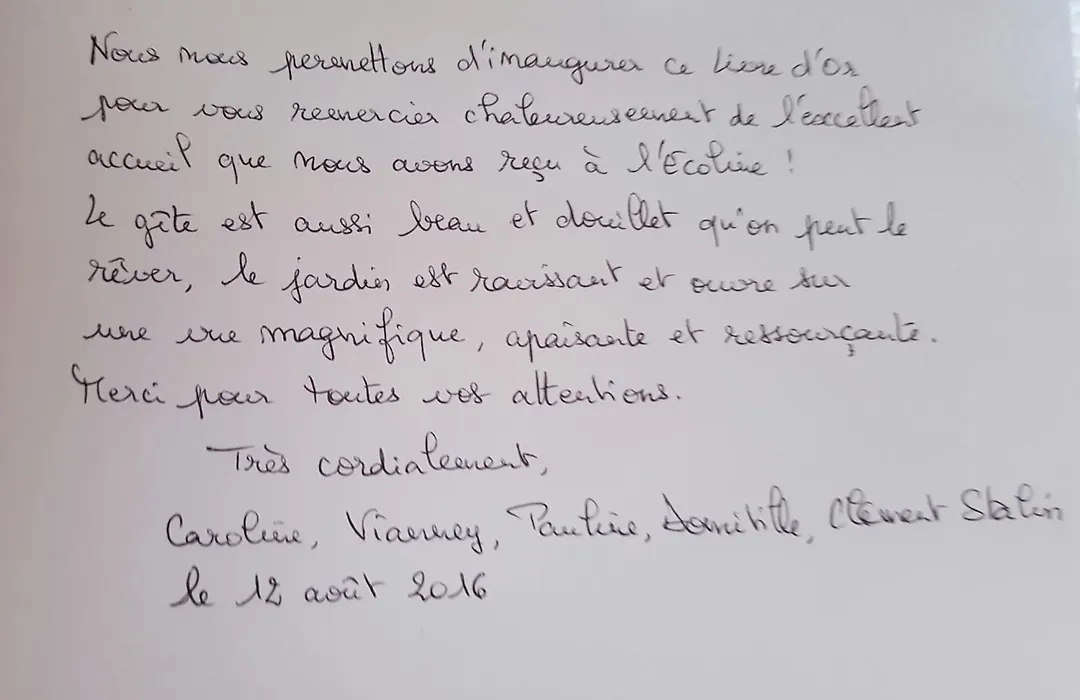 Nous nous permettons d'inaugurer ce livre d'Or
pour vous remercier chaleureusement de l'excellent
accueil que nous avons reçu à l'Écoline !
Le gîte est aussi beau et douillet qu'on peut le
rêver, le jardin est ravissant et ouvre sur
une vue magnifique, apaisante et ressourçante.
Merci pour toutes vos attentions.
Très cordialement,
Caroline, Vianney, Pauline, Domitille, Clément
le 12 août 2016